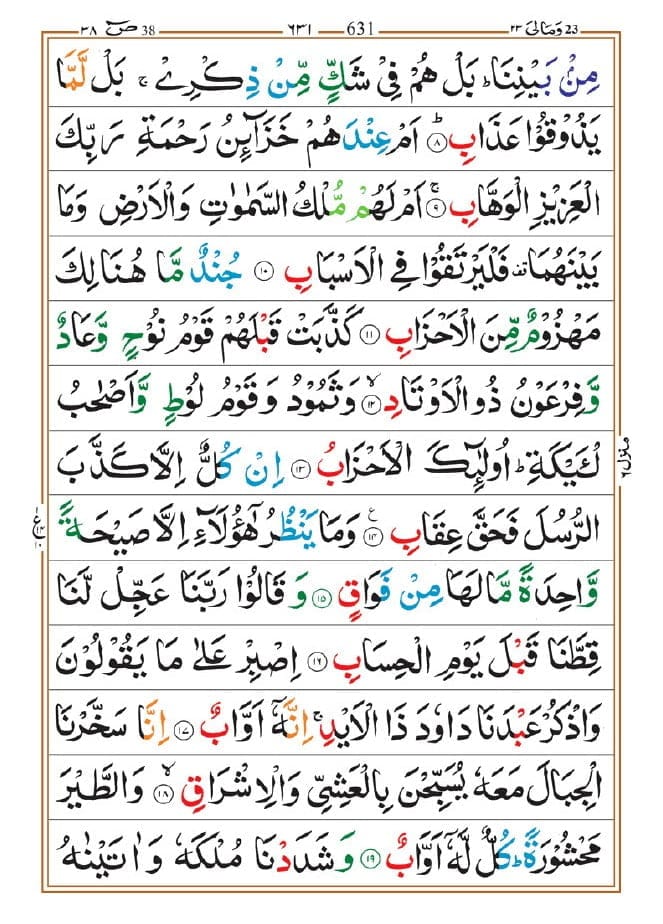 ٣٨ صٓ 38 ٦٣١ 631 ٢٣ وَمَالِىَ 23
مِنْۢ بَيْنِنَا ؕ بَلْ هُمْ فِىْ شَكٍّ مِّنْ ذِكْرِىْ ۚ بَلْ لَّمَّا
يَذُوْقُوْا عَذَابِ ؕ ۝۸ اَمْ عِنْدَهُمْ خَزَآئِنُ رَحْمَةِ رَبِّكَ
الْعَزِيْزِ الْوَهَّابِ ۚ ۝۹ اَمْ لَهُمْ مُّلْكُ السَّمٰوٰتِ وَالْاَرْضِ وَمَا
بَيْنَهُمَا ۫ فَلْيَرْتَقُوْا فِى الْاَسْبَابِ ۝۱۰ جُنْدٌ مَّا هُنَالِكَ
مَهْزُوْمٌ مِّنَ الْاَحْزَابِ ۝۱۱ كَذَّبَتْ قَبْلَهُمْ قَوْمُ نُوْحٍ وَّعَادٌ
وَّفِرْعَوْنُ ذُو الْاَوْتَادِ ۙ ۝۱۲ وَثَمُوْدُ وَقَوْمُ لُوْطٍ وَّاَصْحٰبُ
لْئَيْكَةِ ؕ اُولٰٓئِكَ الْاَحْزَابُ ۝۱۳ اِنْ كُلٌّ اِلَّا كَذَّبَ
الرُّسُلَ فَحَقَّ عِقَابِ ۝۱۴ ع وَمَا يَنْظُرُ هٰٓؤُلَآءِ اِلَّا صَيْحَةً
وَّاحِدَةً مَّا لَهَا مِنْ فَوَاقٍ ۝۱۵ وَقَالُوْا رَبَّنَا عَجِّلْ لَّنَا
قِطَّنَا قَبْلَ يَوْمِ الْحِسَابِ ۝۱۶ اِصْبِرْ عَلٰى مَا يَقُوْلُوْنَ
وَاذْكُرْ عَبْدَنَا دَاوٗدَ ذَا الْاَيْدِ ۚ اِنَّهٗۤ اَوَّابٌ ۝۱۷ اِنَّا سَخَّرْنَا
الْجِبَالَ مَعَهٗ يُسَبِّحْنَ بِالْعَشِىِّ وَالْاِشْرَاقِ ۙ ۝۱۸ وَالطَّيْرَ
مَحْشُوْرَةً ؕ كُلٌّ لَّهٗۤ اَوَّابٌ ۝۱۹ وَشَدَدْنَا مُلْكَهٗ وَاٰتَيْنٰهُ
منزل ٦